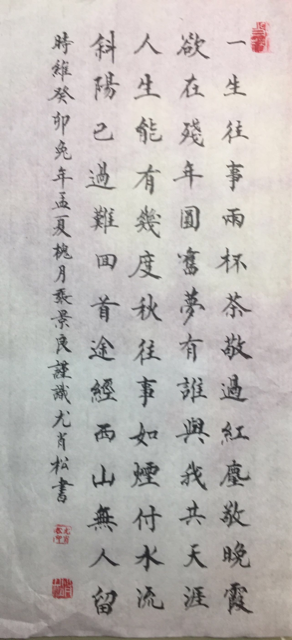 一生往事兩杯茶敬過紅塵敬晚霞
欲在殘年圓舊夢有誰與我共天涯
人生能有幾度秋往事如煙付水流
斜陽已過難回首途經西山無人留
時維癸卯兔年孟夏槐月張景良謹識尤肖松書